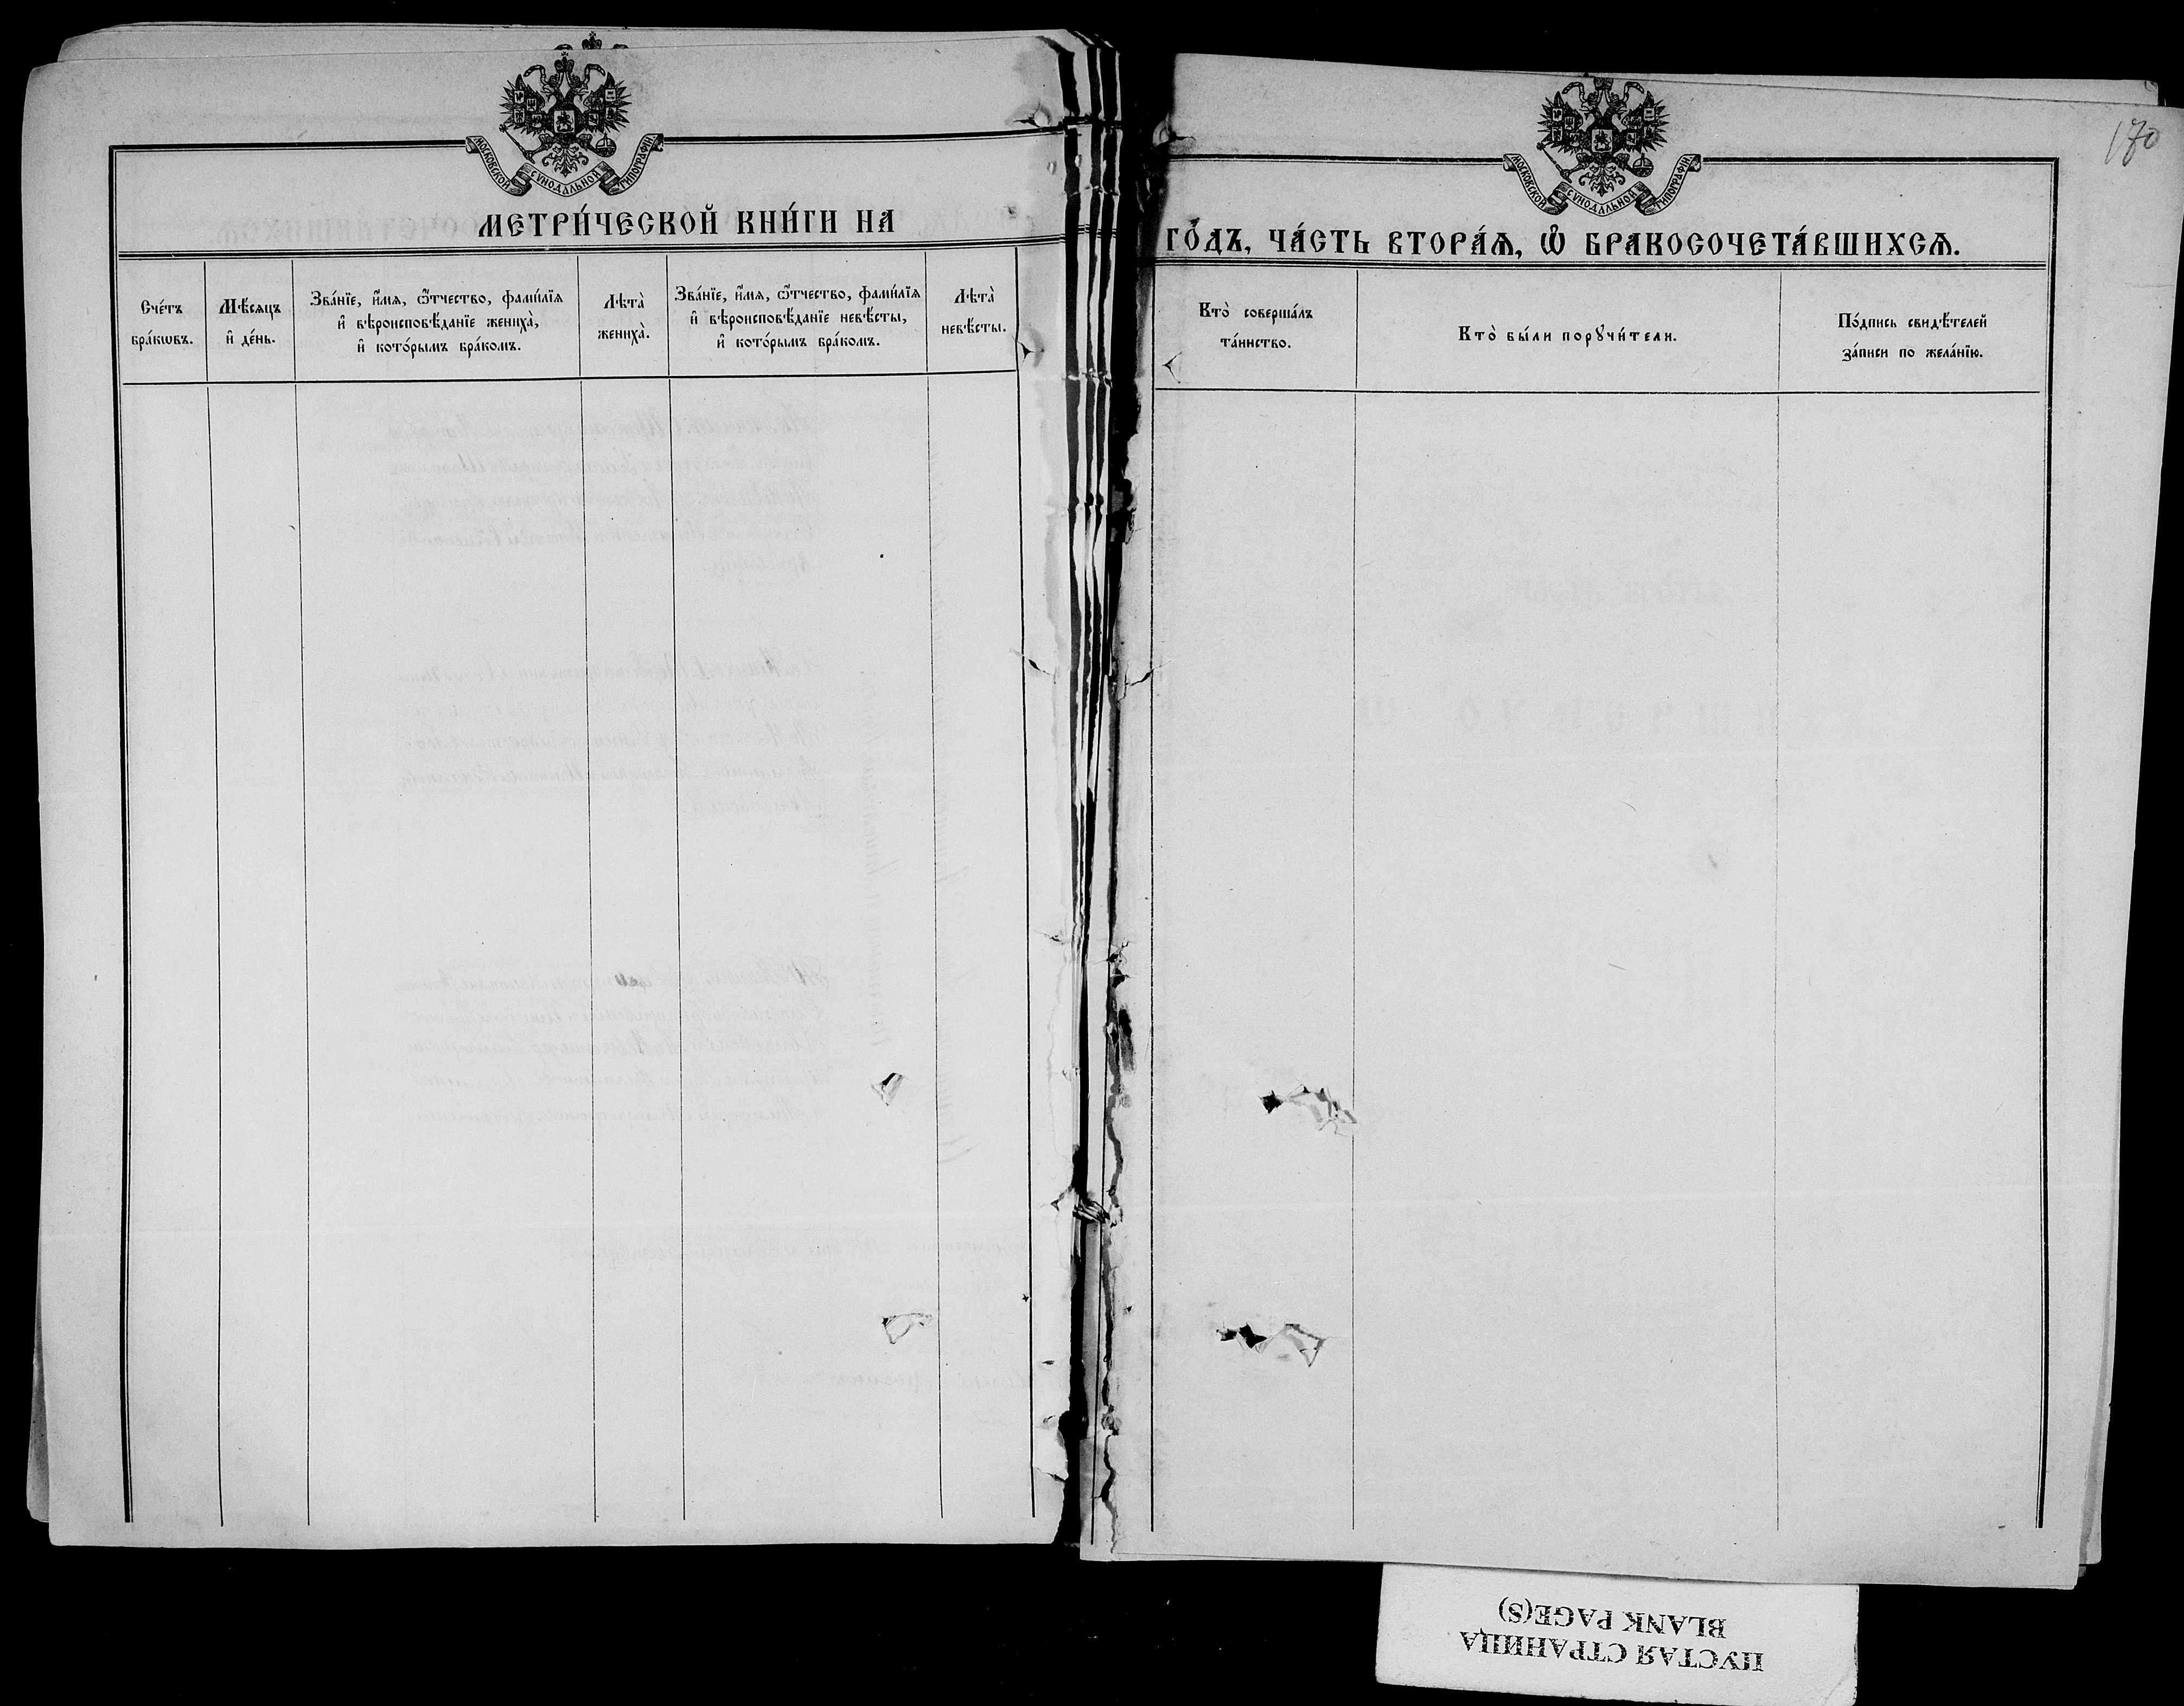 МОСКОВСКОЙ СѴНОДАЛЬНОЙ ТИПОГРАФІИ
МЕТРИ́ЧЕСКОЙ КНИ́ГИ НА
Сче́тъ
бра́кѡвъ.
Мѣ́сяцъ
и҆ де́нь.
Зва́нїе, и҆́мя, ѻ҆́тчество, фами́лїя
и҆ вѣроисповѣ́данїе жениха̀,
и҆ кото́рымъ бра́комъ.
Лѣта̀
жениха̀.
Зва́нїе, и҆́мя, ѻ҆́тчество, фами́лїя
и҆ вѣроисповѣ́данїе невѣ́сты,
и҆ кото́рымъ бра́комъ.
Лѣта̀
невѣ́сты.
170
МОСКОВСКОЙ СѴНОДАЛЬНОЙ ТИПОГРАФІИ
ГО́ДЪ, ЧА́СТЬ ВТОРА́Ѧ, Ѡ҆ БРАКОСОЧЕТА́ВШИХСѦ.
Кто̀ соверша́лъ
та́инство.
Кто̀ бы́ли порꙋчи́тели.
По́дпись свидѣ́телей
за́писи по жела́нїю.
ПУСТАЯ СТРАНИЦА
BLANK PAGE(S)